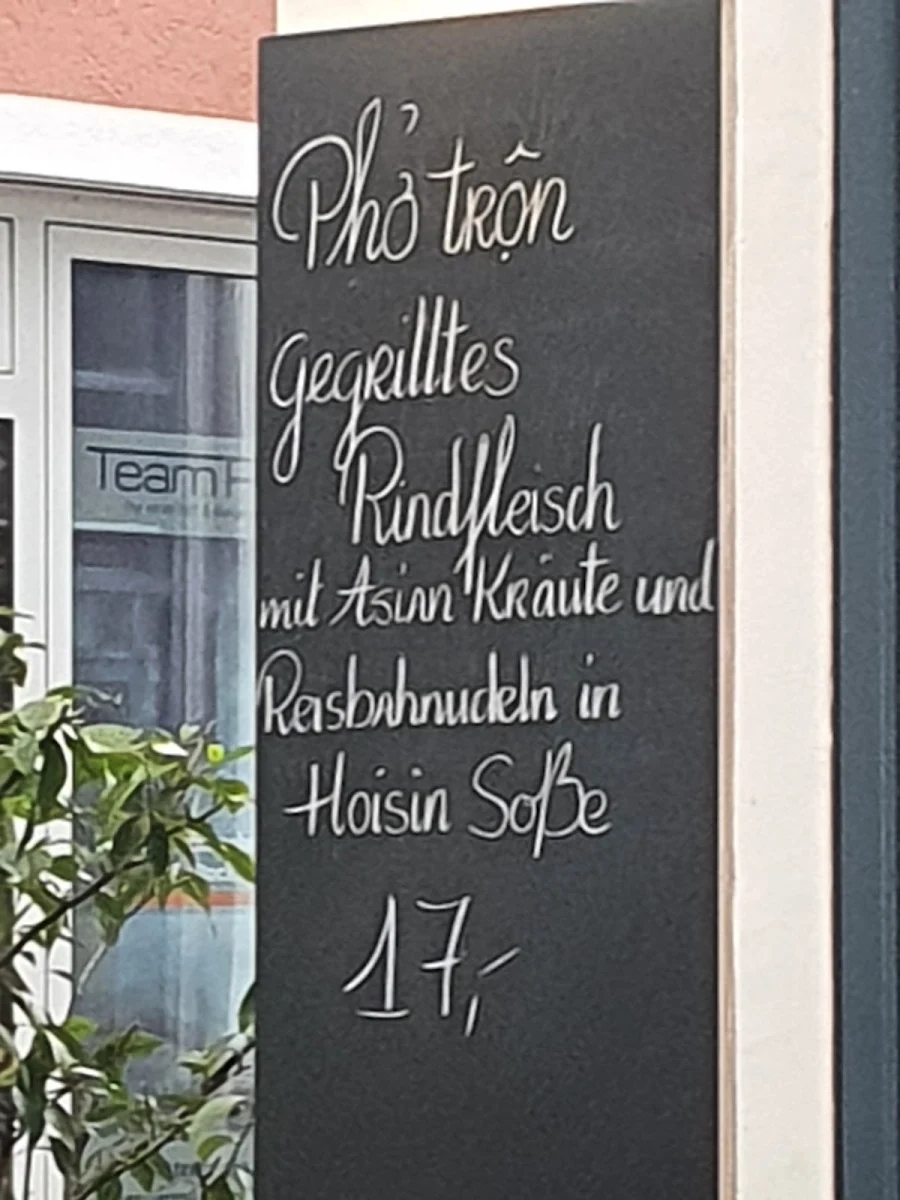 Phở trộn
Gegrilltes
Rindfleisch
mit Asian Kräute und
Reisbahnudeln in
Hoisin Soße
17,-
Team